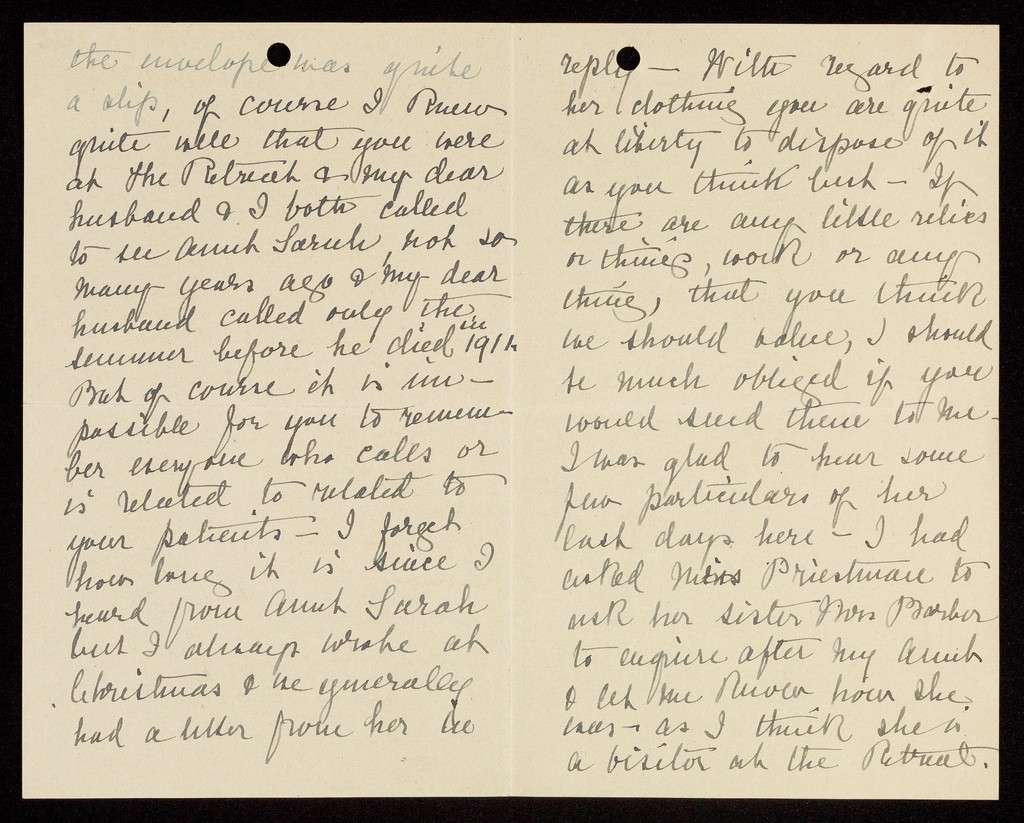 the envelope was quite
a slip, of course I knew
quite well that you were
at the Retreat & my dear
husband & I both called
to see Aunt Sarah, not so
many years ago & my dear
husband called only the
summer before he died in 1911.
But of course it is im-
possible for you to remem-
ber everyone who calls or
is related to related to
your patients — I forget
how long it is since I
heard from Aunt Sarah
but I always wrote at
Christmas & we generally
had a letter from her in
reply — With regard to
her clothing you are quite
at liberty to dispose of it
as you think best — If
there are any little relics
or things, work or any
thing, that you think
we should value, I should
be much obliged if you
would send them to me —
I was glad to hear some
few particulars of her
last days here — I had
asked Miss Priestman to
ask her sister Mrs Barber
to enquire after my Aunt
& let me know how she
was — as I think she is
a visitor at the Retreat.